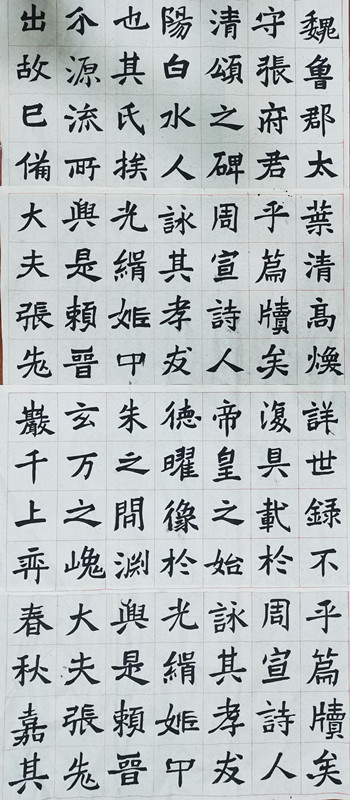 魏魯郡太
守張府君
清頌之碑
陽白水人
也其氏挨
尒源流所
出故巳備
葉清高煥
乎篇牘矣
周宣詩人
詠其孝友
光緝姬中
與是賴晉
大夫張老
詳世録不
復具載於
帝皇之始
德曜像於
朱之間淵
玄万之㟴
巖千上弈
乎篇牘矣
周宣詩人
詠其孝友
光緝姬中
與是賴晉
大夫張老
春秋嘉其